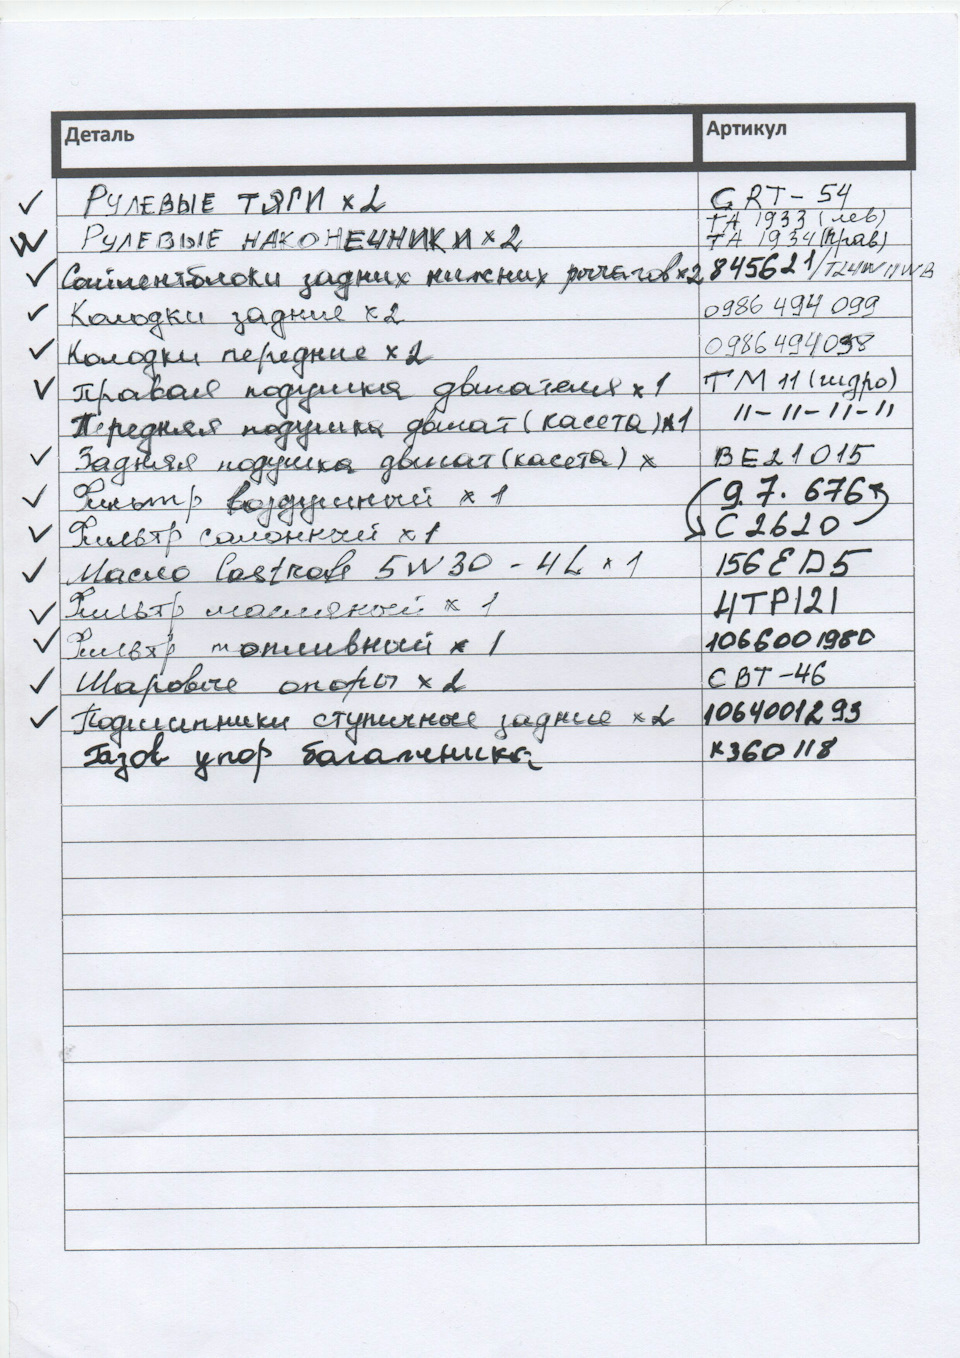 Деталь Артикул
✓ РУЛЕВЫЕ ТЯГИ x2 CRT-54
ТА 1933 (лев)
✓ РУЛЕВЫЕ НАКОНЕЧНИКИ x2 ТА 1934 (прав)
✓ Сайлентблоки задних нижних рычагов x2 845621/
✓ Колодки задние x2 0986 494 099
✓ Колодки передние x2 0986494098
✓ Правая подушка двигателя x1 TM 11 (гидро)
Передняя подушка двигат (касета) x1 11-11-11-11
✓ Задняя подушка двигат (касета) x BE21015
✓ Фильтр воздушный x1 9.7.676
✓ Фильтр салонный x1 C2620
✓ Масло Castrol 5W30 - 4L x1 156ED5
✓ Фильтр масляный x 1 4TP121
✓ Фильтр топливный x 1 1066001980
✓ Шаровые опоры x2 CBT-46
✓ Подшипники ступичные задние x2 1064001293
Газов упор багажника x360118